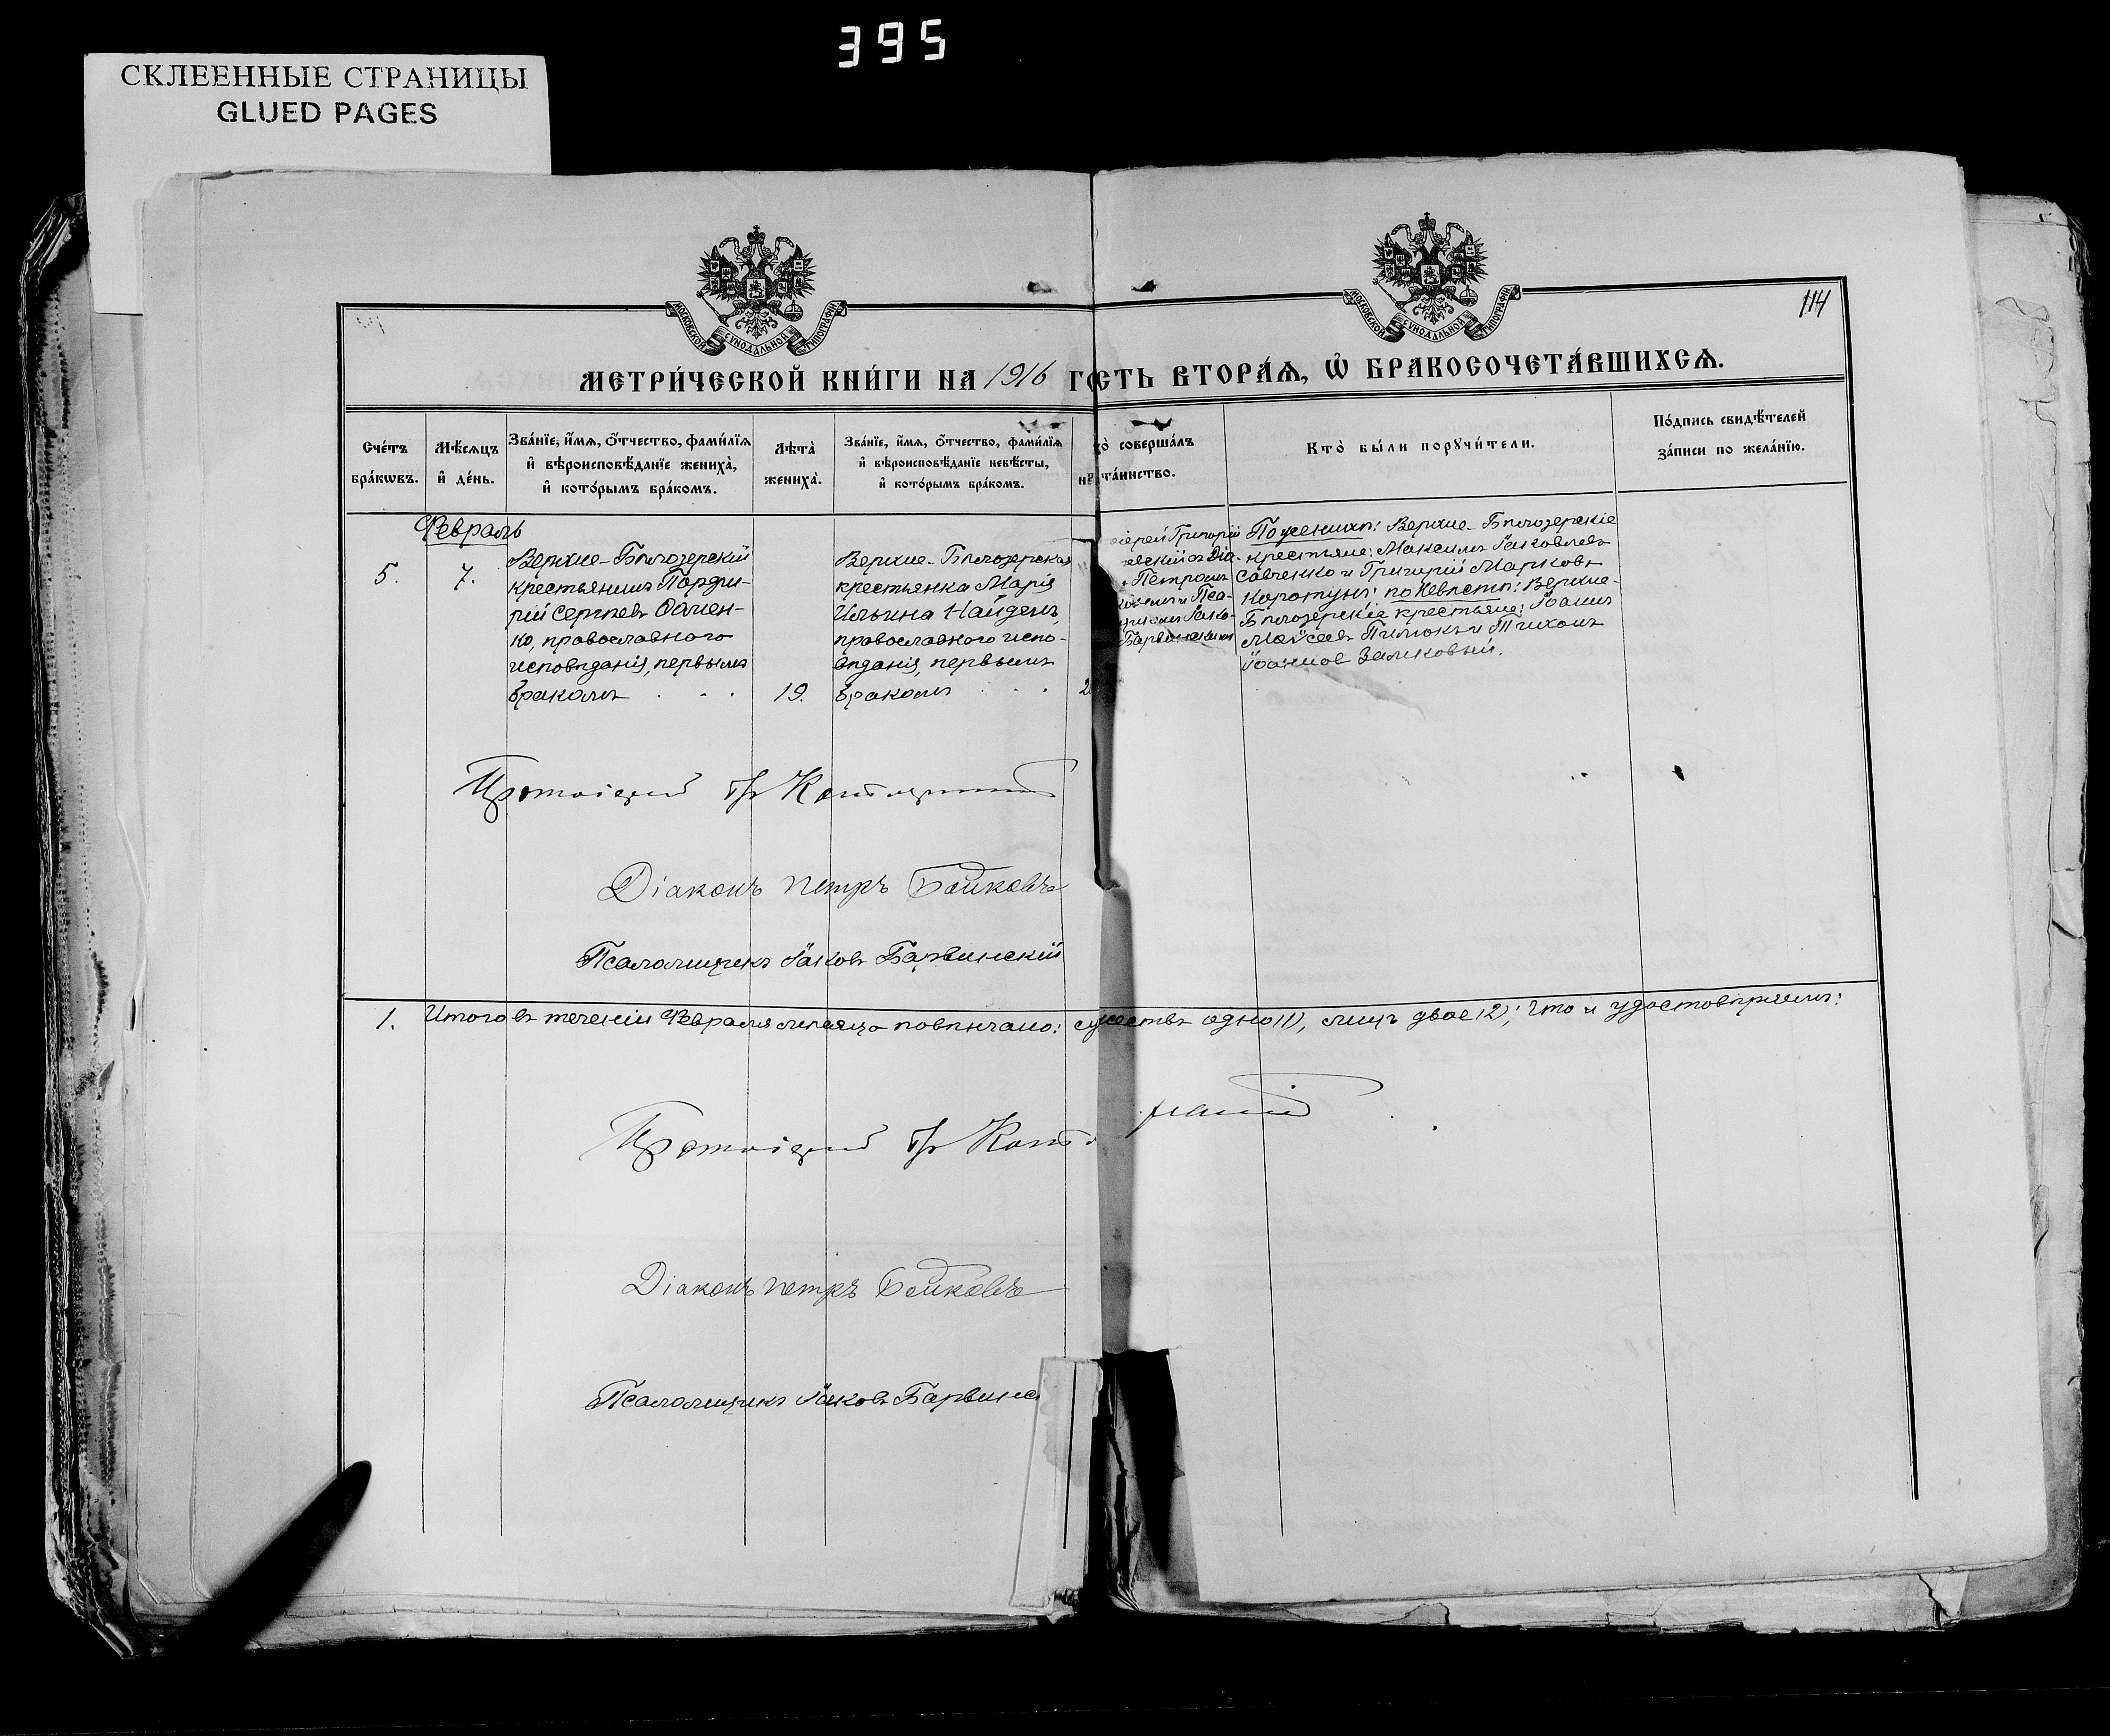 395
СКЛЕЕННЫЕ СТРАНИЦЫ
GLUED PAGES
114
МОСКОВСКОЙ СѴНОДАЛЬНОЙ ТИПОГРАФІИ
МОСКОВСКОЙ СѴНОДАЛЬНОЙ ТИПОГРАФІИ
МЕТРИ́ЧЕСКОЙ КНИ́ГИ НА 1916 Г
СТЬ ВТОРА́Ѧ, Ѡ҆ БРАКОСОЧЕТА́ВШИХСѦ.
Сче́тъ
бра́кѡвъ.
Мѣ́сѧцъ
и҆ де́нь.
Зва́нїе, и҆́мѧ, ѻ҆́тчество, фами́лїѧ
и҆ вѣроисповѣ́данїе жениха̀,
и҆ кото́рымъ бра́комъ.
Лѣта̀
жениха̀.
Зва́нїе, и҆́мѧ, ѻ҆́тчество, фами́лїѧ
и҆ вѣроисповѣ́данїе невѣ́сты,
и҆ кото́рымъ бра́комъ.
о̀ соверша́лъ
та́инство.
Кто̀ бы́ли порꙋчи́тели.
По́дпись свидѣ́телей
за́писи по жела́нїю.
Февраль
5.
7.
Верхне-Бѣлозерскій
крестьянинъ Порфи-
рій Сергѣевъ
ко, православнаго
исповѣданія, первымъ
бракомъ . . .
19.
Верхне-Бѣлозерская
крестьянка Марія
Ильина Найденъ,
православнаго испо-
вѣданія, первымъ
бракомъ . . .
2
іерей Григорій
евскій съ Діа-
Петромъ
и Пса-
Іако-
Барвинскимъ
По женихѣ: Верхне-Бѣлозерскіе
крестьяне: Максимъ Іаковлевъ
Савченко и Григорій Марковъ
Коротунъ; по невѣстѣ: Верхне-
Бѣлозерскіе крестьяне: Іоаннъ
Моѵсеевъ и Тихонъ
Іоанновъ Замковый.
Протоіерей Гр
Діаконъ Петръ Бойковъ
Псаломщикъ Іаковъ Барвинскій
1. Итого въ теченіи Февраля мѣсяца повѣнчано: супружествъ одно (1), лицъ двое (2); Что и удостовѣряемъ:
Протоіерей Гр
Діаконъ Петръ Бойковъ
Псаломщикъ Іаковъ Барвинс